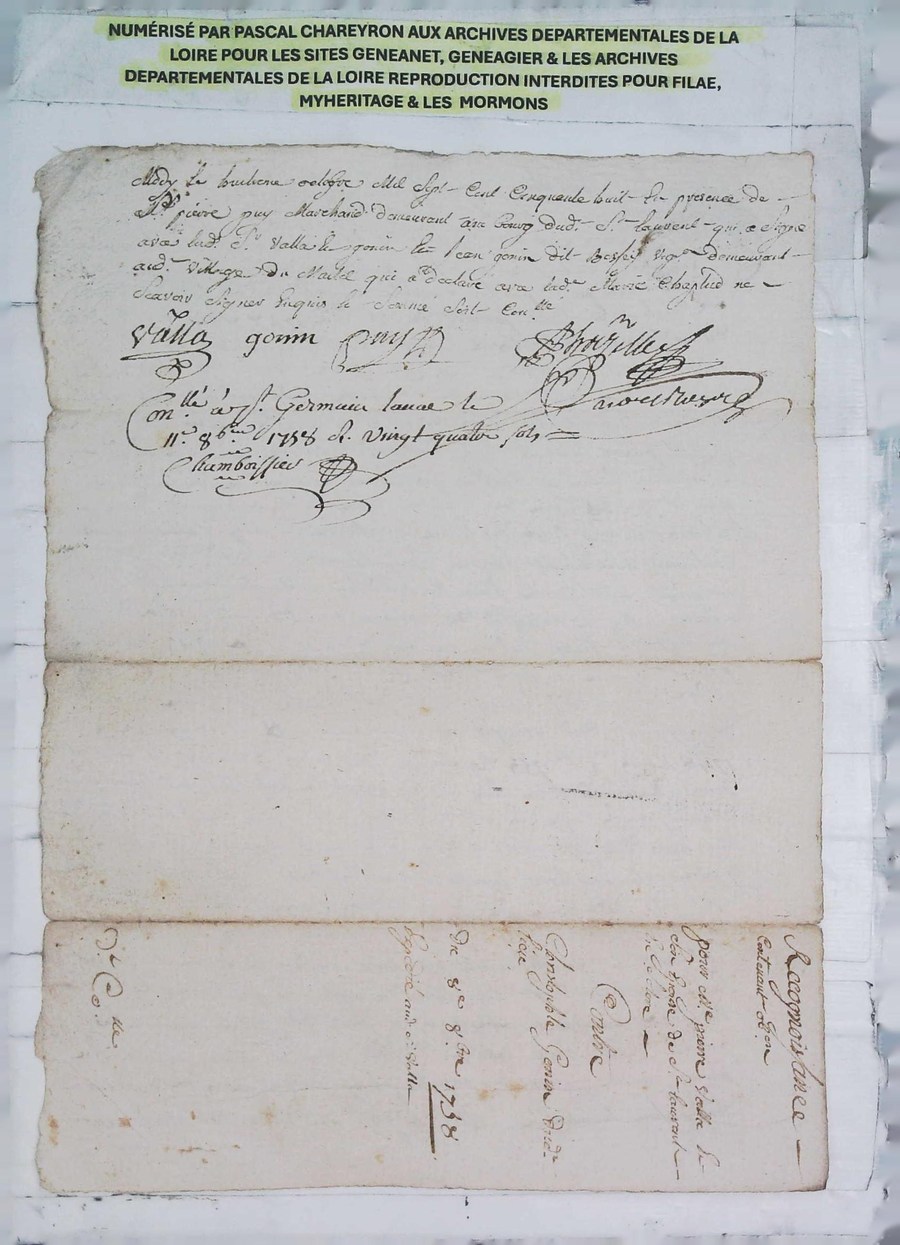 NUMÉRISÉ PAR PASCAL CHAREYRON AUX ARCHIVES DEPARTEMENTALES DE LA
LOIRE POUR LES SITES GENEANET, GENEAGIER & LES ARCHIVES
DEPARTEMENTALES DE LA LOIRE REPRODUCTION INTERDITES POUR FILAE,
MYHERITAGE & LES MORMONS
Midy le huitieme octobre Mil Sept Cent Cinquante huit En presence de
Sr. pierre guy Marchand demeurant au bourg dud. St. laurent qui a signé
avec led. Sr. Valla & gonin & Jean gonin dit Bessey vigon demeurant
aud. Village Du Maitel qui a declaré avec lad. Marie Chaptud ne
Scavoir signer Enquis & Sommé Soit Conlle
Valla gonin guy
Conllé à St. Germain laval le
11e. 8bre 1758 R. Vingt quatre sols
Chamboissier
Recognoissance
Contenant
pour Me pierre Valla
de St. laurent
Contre
Christophle Gonin Dud.
lieu
Du 8e 8bre 1758
Expedié aud. Sr Valla
Dt Co lle